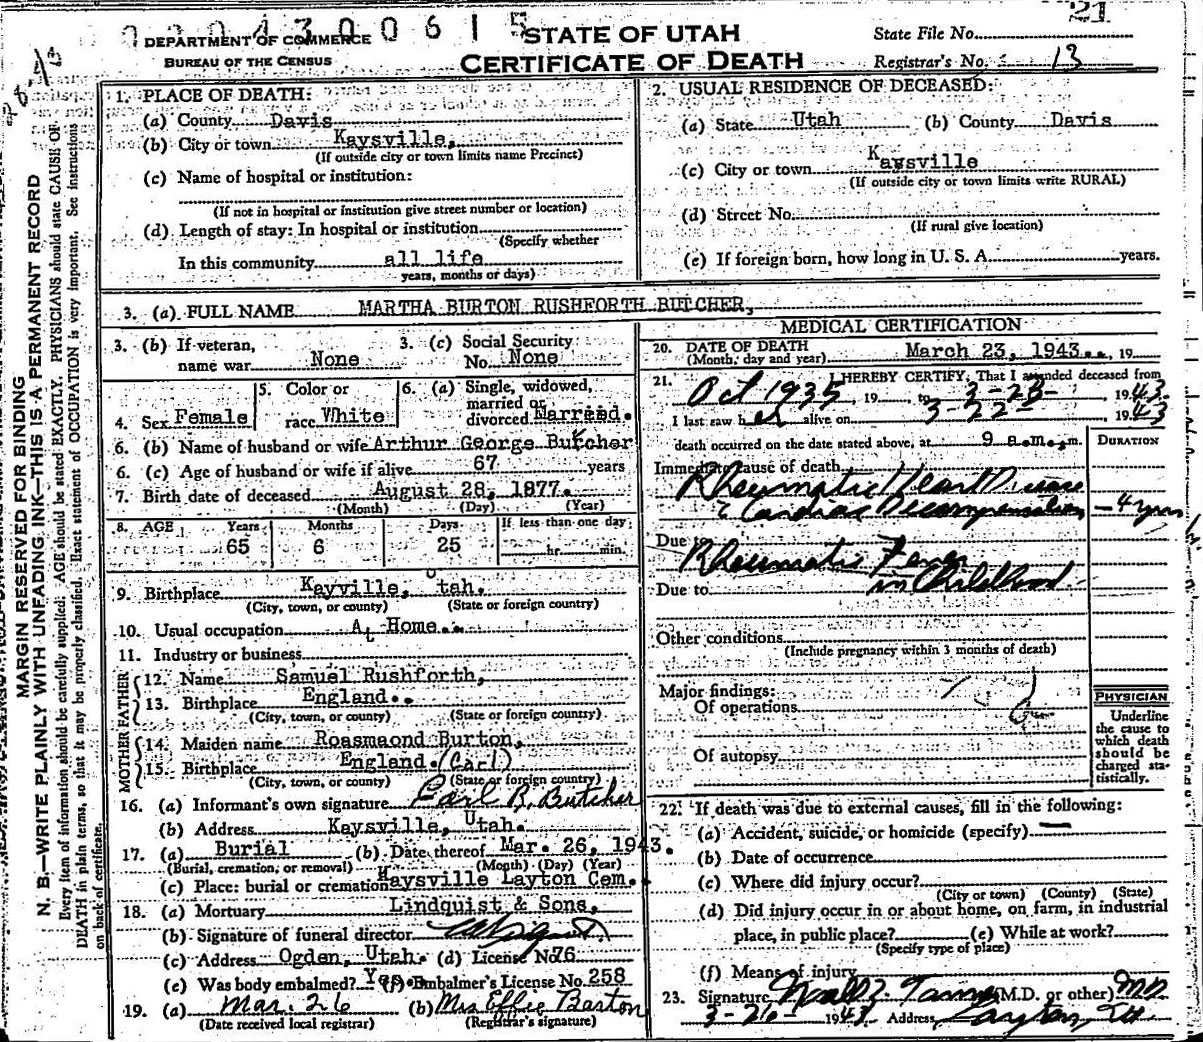 0 3 0 4 3 0 0 6 1 5
21
DEPARTMENT OF COMMERCE
BUREAU OF THE CENSUS
STATE OF UTAH
CERTIFICATE OF DEATH
State File No.
Registrar's No. 13
MARGIN RESERVED FOR BINDING
N. B.—WRITE PLAINLY WITH UNFADING INK—THIS IS A PERMANENT RECORD
Every item of information should be carefully supplied. AGE should be stated EXACTLY. PHYSICIANS should state CAUSE OF
DEATH in plain terms, so that it may be properly classified. Exact statement of OCCUPATION is very important. See instructions
on back of certificate.
1. PLACE OF DEATH:
(a) County Davis
(b) City or town Kaysville,
(If outside city or town limits name Precinct)
(c) Name of hospital or institution:
(If not in hospital or institution give street number or location)
(d) Length of stay: In hospital or institution
(Specify whether
In this community all life
years, months or days)
2. USUAL RESIDENCE OF DECEASED:
(a) State Utah (b) County Davis
(c) City or town Kaysville
(If outside city or town limits write RURAL)
(d) Street No.
(If rural give location)
(e) If foreign born, how long in U. S. A. years.
3. (a) FULL NAME MARTHA BURTON RUSHFORTH BUTCHER,
3. (b) If veteran, name war None
3. (c) Social Security No. None
4. Sex Female
5. Color or race White
6. (a) Single, widowed, married or divorced Marread.
6. (b) Name of husband or wife Arthur George Butcher
6. (c) Age of husband or wife if alive 67 years
7. Birth date of deceased August 28, 1877.
(Month) (Day) (Year)
8. AGE Years Months Days If less than one day
65 6 25 hr. min.
9. Birthplace Kayville, Utah.
(City, town, or county) (State or foreign country)
10. Usual occupation At Home..
11. Industry or business
FATHER
12. Name Samuel Rushforth,
13. Birthplace England..
(City, town, or county) (State or foreign country)
MOTHER
14. Maiden name Roasmaond Burton,
15. Birthplace England. (Carl)
(City, town, or county) (State or foreign country)
16. (a) Informant's own signature Carl B. Butcher
(b) Address Kaysville, Utah.
17. (a) Burial (b) Date thereof Mar. 26, 1943.
(Burial, cremation, or removal) (Month) (Day) (Year)
(c) Place: burial or cremation Kaysville Layton Cem..
18. (a) Mortuary Lindquist & Sons,
(b) Signature of funeral director
(c) Address Ogden, Utah. (d) License No. 76
(e) Was body embalmed? Yes. (f) Embalmer's License No. 258
19. (a) Mar. 26 (b) Mrs Effie Barton
(Date received local registrar) (Registrar's signature)
MEDICAL CERTIFICATION
20. DATE OF DEATH
(Month, day and year) March 23, 1943.., 19
21. I HEREBY CERTIFY, That I attended deceased from
Oct 1935, 19 to 3-23- 1943.
I last saw her alive on 3-22- 1943
death occurred on the date stated above, at 9 a.m. m.
DURATION
Immediate cause of death
Rheumatic Heart Disease
& Cardiac Decompensation – 4 years
Due to
Rheumatic Fever
in Childhood
Due to
Other conditions
(Include pregnancy within 3 months of death)
Major findings:
Of operations
Of autopsy
PHYSICIAN
Underline
the cause to
which death
should be
charged sta-
tistically.
22. If death was due to external causes, fill in the following:
(a) Accident, suicide, or homicide (specify) —
(b) Date of occurrence
(c) Where did injury occur?
(City or town) (County) (State)
(d) Did injury occur in or about home, on farm, in industrial
place, in public place? (e) While at work?
(Specify type of place)
(f) Means of injury
23. Signature Tanner (M.D. or other) MD
3-26- 1943 Address Layton, Ut.